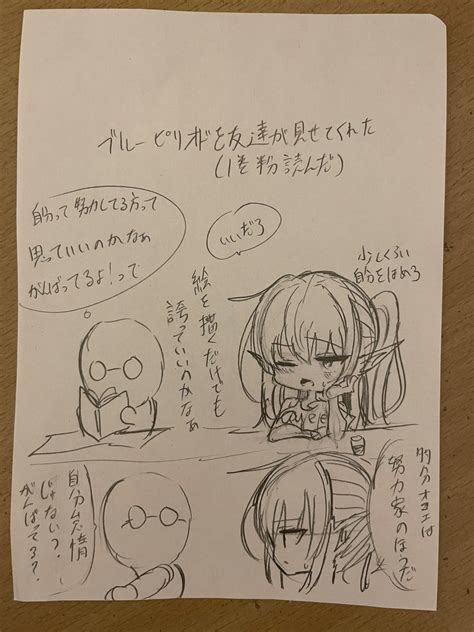 ブルーピリオドを友達が見せてくれた
(1巻粉読んだ)
いいだろ
少しくらい
自分をほめろ
自分って努力してる方って
思っていいのかなぁ
がんばってるよ!って
絵を描くだけでも
誇っていいのかなぁ
多分オマエは
努力家のほうだ
自分欠情
じゃない?
がんばってる?